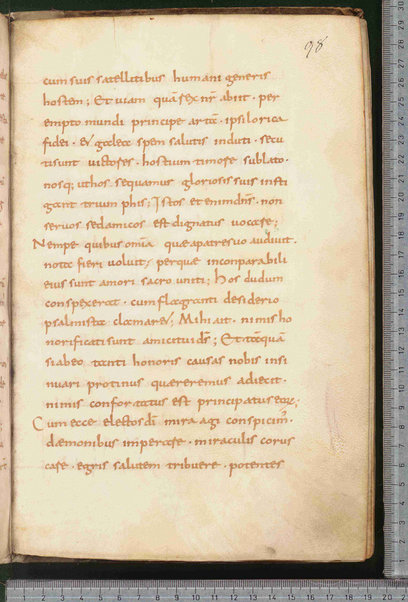 98
cum suis satellitibus humani generis
hostem; Et viam quā sex nr̄ abiit · per
empto mundi principe artā · ips lorica
fidei · et galea spem salutis induti · secu
ti sunt victores · hostium timore sublato ·
nosq; ut hos sequamur gloriosis suis insti
gant trium phis; Istos etenim dn̄s · non
servos sed amicos est dignatus vocare;
Nempe quibus om̄ia quae a patre suo audivit ·
nota fieri voluit; perquā inconparabili
eius sunt amori sacro uniti; Hos dudum
conspexerat · cum flagranti desiderio
psalmista clamaret; Mihi ait · nimis ho
norificati sunt amici tui ds̄; Et tāquā
si ab eo tanti honoris causas nobis insi
nuari protinus quaereremus adiecit ·
nimis confortatus est principatus eorum;
Cum ecce electos dī mira agi conspicim̄ ·
daemonibus imperare · miraculis corus
care · egris salutem tribuere · potentes